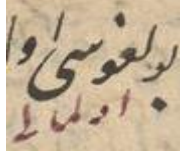 بولغوسی اوا
اولمالی